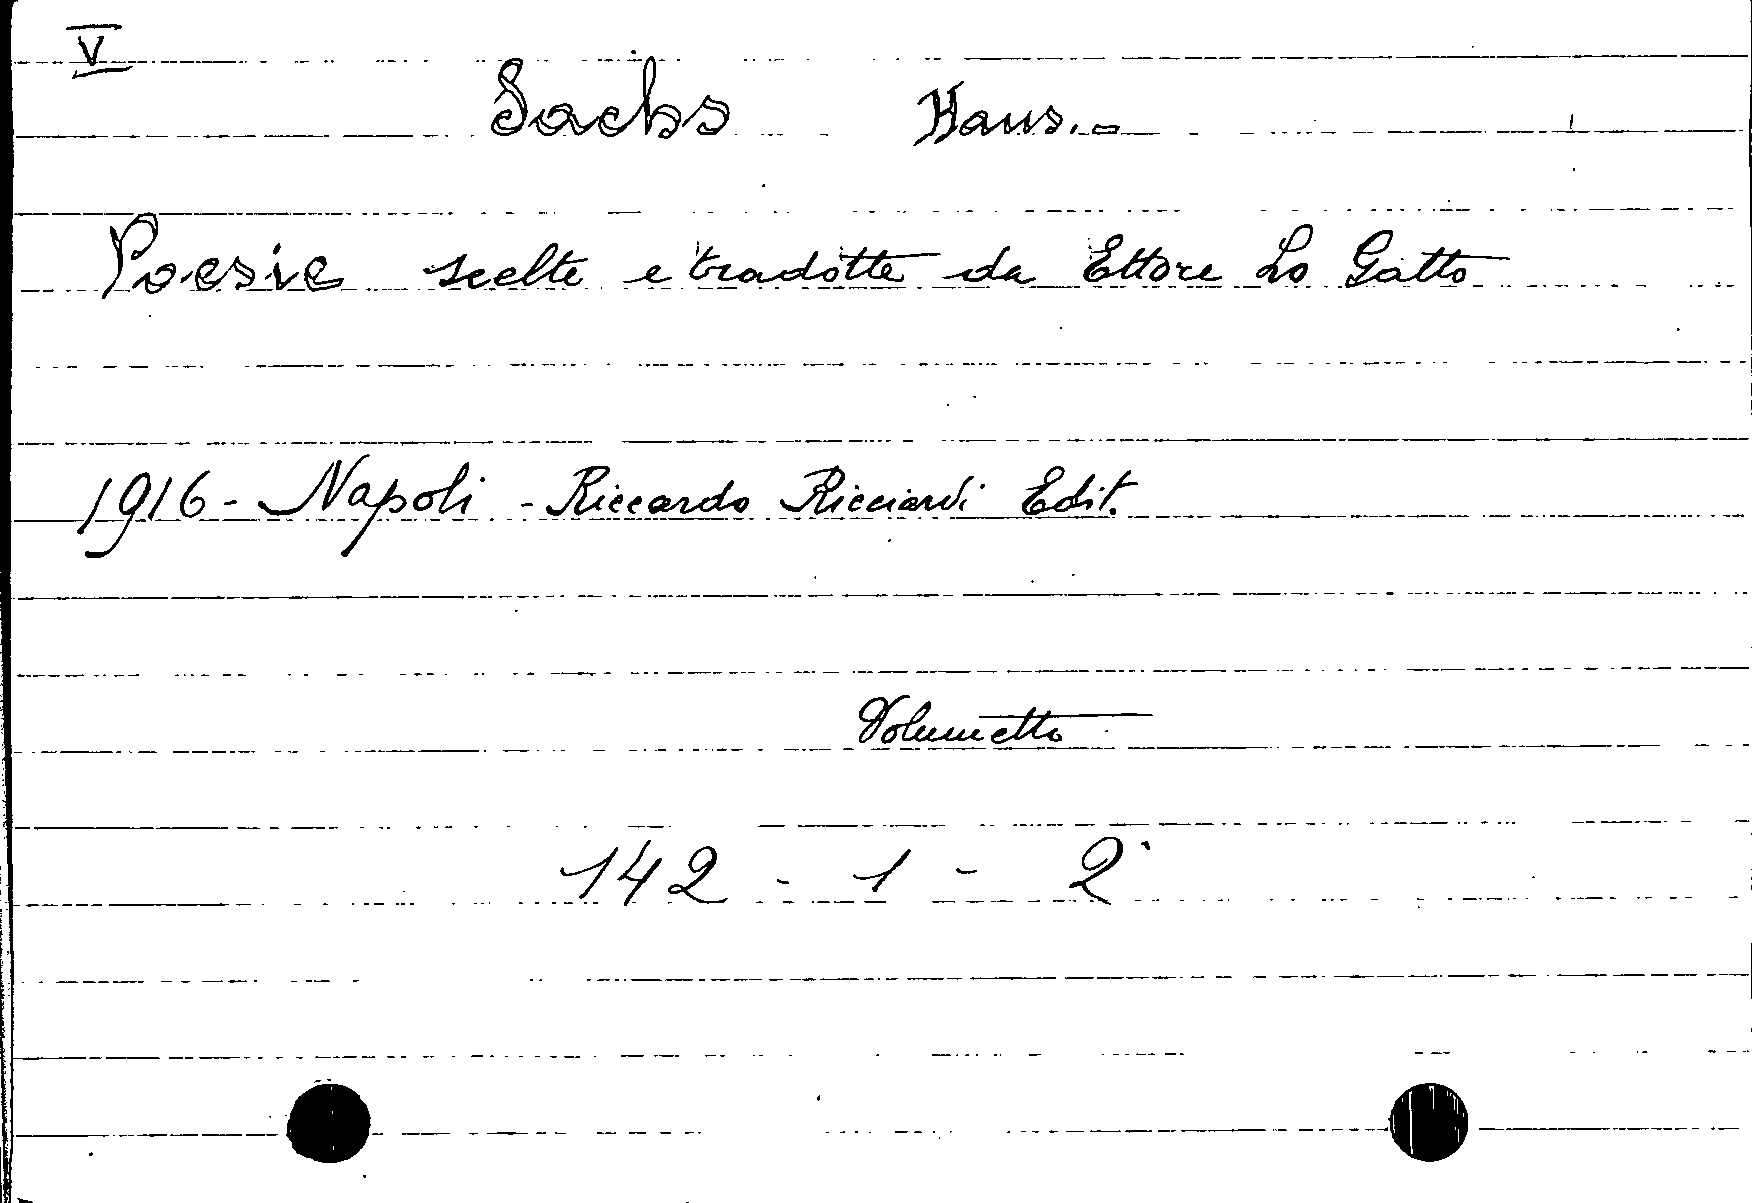 V
Sachs Hans.-
Poesie scelte e tradotte da Ettore Lo Gatto
1916 - Napoli - Riccardo Ricciardi Edit.
Volumetto
142 - 1 - 2